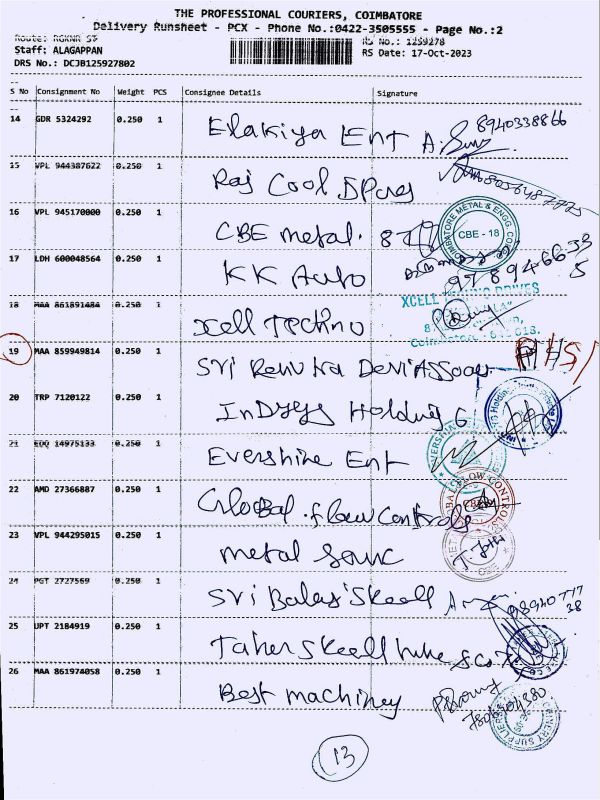 THE PROFESSIONAL COURIERS, COIMBATORE
Delivery Runsheet - PCX - Phone No.:0422-3505555 - Page No.:2
Route: RGKNR ST
RS No.: 1259278
Staff: ALAGAPPAN
RS Date: 17-Oct-2023
DRS No.: DCJB125927802
S No Consignment No Weight PCS Consignee Details Signature
14 GDR 5324292 0.250 1 Elakiya Ent 8940338866
15 VPL 944387622 0.250 1 Raj Cool Spares
16 VPL 945170000 0.250 1 CBE metal.
COIMBATORE METAL & ENGG. CO.
CBE - 18
17 LDH 600048564 0.250 1 KK Auto
18 MAA 861891484 0.250 1 xcell Techno
XCELL DRIVES
19 MAA 859949814 0.250 1 Sri Renuka Devi Assoc
20 TRP 7120122 0.250 1 Indsys Holding
21 EDQ 14975133 0.250 1 Evershine Ent
22 AMD 27366887 0.250 1 Global flow Controls
23 VPL 944295015 0.250 1 metal
24 PGT 2727569 0.250 1 Sri Balaji Skeell
25 UPT 2184919 0.250 1 Taher Skeell tube & Co
26 MAA 861974058 0.250 1 Best machiney
13